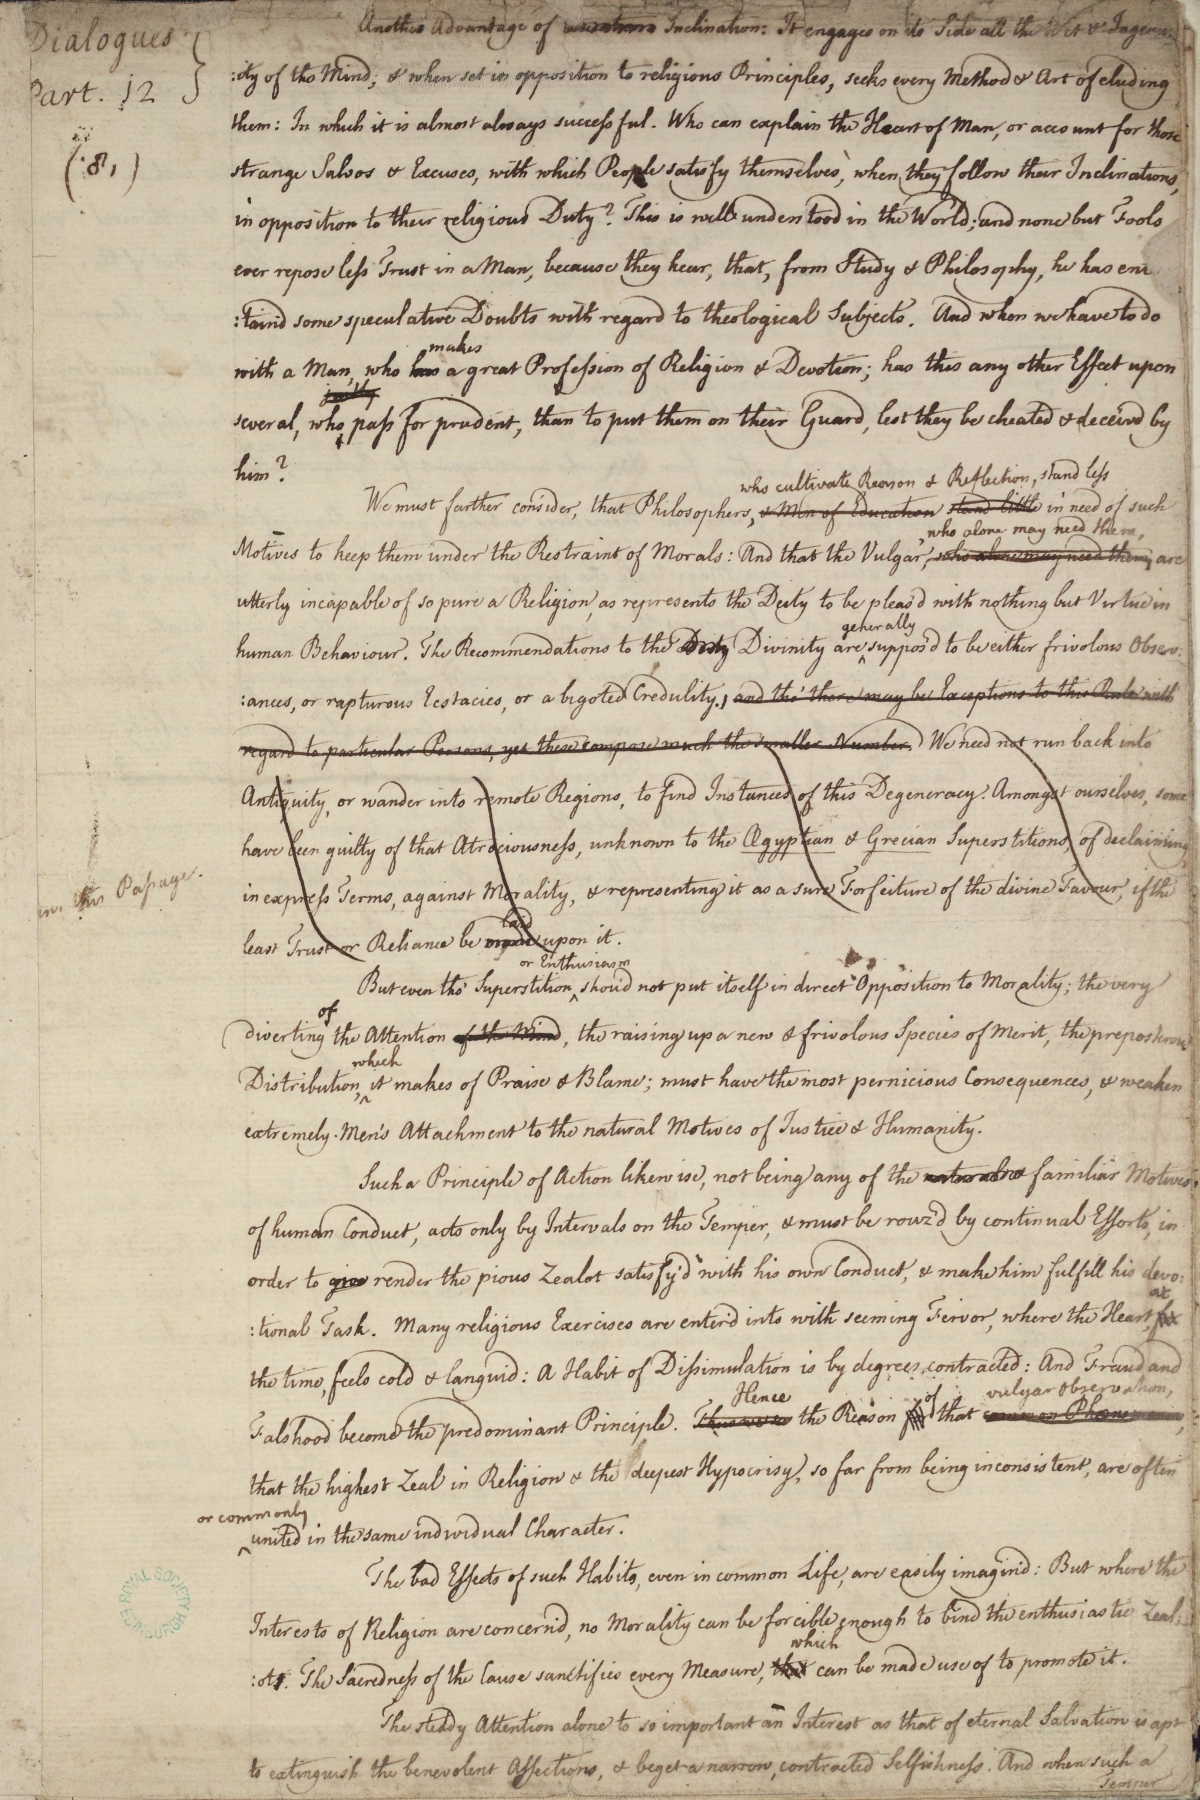 Dialogues
Part. 12
(81)
Another Advantage of Inclination: It engages on its Side all the Wit & Ingenu
:ity of the Mind; & when set in opposition to religious Principles, seeks every Method & Art of eluding
them: In which it is almost always successful. Who can explain the Heart of Man, or account for those
strange Salvos & Excuses, with which People satisfy themselves, when they follow their Inclinations,
in opposition to their religious Duty? This is well understood in the World; and none but Fools
ever repose less Trust in a Man, because they hear, that, from Study & Philosophy, he has ent
:taind some speculative Doubts with regard to theological Subjects. And when we have to do
makes
with a Man, who has a great Profession of Religion & Devotion; has this any other Effect upon
justly
several, who pass for prudent, than to put them on their Guard, lest they be cheated & deceivd by
him?
who cultivate Reason & Reflection, stand less
We must farther consider, that Philosophers, & Men of Education stand little in need of such
who alone may need them,
Motives to keep them under the Restraint of Morals: And that the Vulgar, who alone may need them, are
utterly incapable of so pure a Religion, as represents the Deity to be pleas'd with nothing but Virtue in
generally
human Behaviour. The Recommendations to the Deity Divinity are suppos'd to be either frivolous Obser:
:ances, or rapturous Ecstacies, or a bigoted Credulity, and tho' there may be Exceptions to this Rule with
regard to particular Persons, yet these compose much the smaller Number. We need not run back into
Antiquity, or wander into remote Regions, to find Instances of this Degeneracy. Amongst ourselves, some
have been guilty of that Atrociousness, unknown to the Ægyptian & Grecian Superstitions, of declaiming,
in express Terms, against Morality, & representing it as a sure Forfeiture of the divine Favour, if the
in this Passage.
laid
least Trust or Reliance be made upon it.
or Enthusiasm
But even tho' Superstition shoud not put itself in direct Opposition to Morality; the very
of
diverting the Attention of the Mind, the raising up a new & frivolous Species of Merit, the preposterous
which
Distribution, it makes of Praise & Blame; must have the most pernicious Consequences, & weaken
extremely Men's Attachment to the natural Motives of Justice & Humanity.
Such a Principle of Action likewise, not being any of the familiar Motives
of human Conduct, acts only by Intervals on the Temper, & must be rouz'd by continual Efforts, in
order to give render the pious Zealot satisfy'd with his own Conduct, & make him fulfill his devo:
at
:tional Task. Many religious Exercises are enterd into with seeming Fervor, where the Heart, for
the time, feels cold & languid: A Habit of Dissimulation is by degrees contracted: And Fraud and
Hence of vulgar Observation,
Falshood become the predominant Principle. the Reason for that common Phænomenon,
that the highest Zeal in Religion & the deepest Hypocrisy, so far from being inconsistent, are often
or commonly
united in the same individual Character.
The bad Effects of such Habits, even in common Life, are easily imagind: But where the
Interests of Religion are concernd, no Morality can be forcible enough to bind the enthusiastic Zeal:
which
:ot. The Sacredness of the Cause sanctifies every Measure, that can be made use of to promote it.
The steddy Attention alone to so important an Interest as that of eternal Salvation is apt
to extinguish the benevolent Affections, & beget a narrow, contracted Selfishness. And when such a
Temper
ROYAL SOCIETY